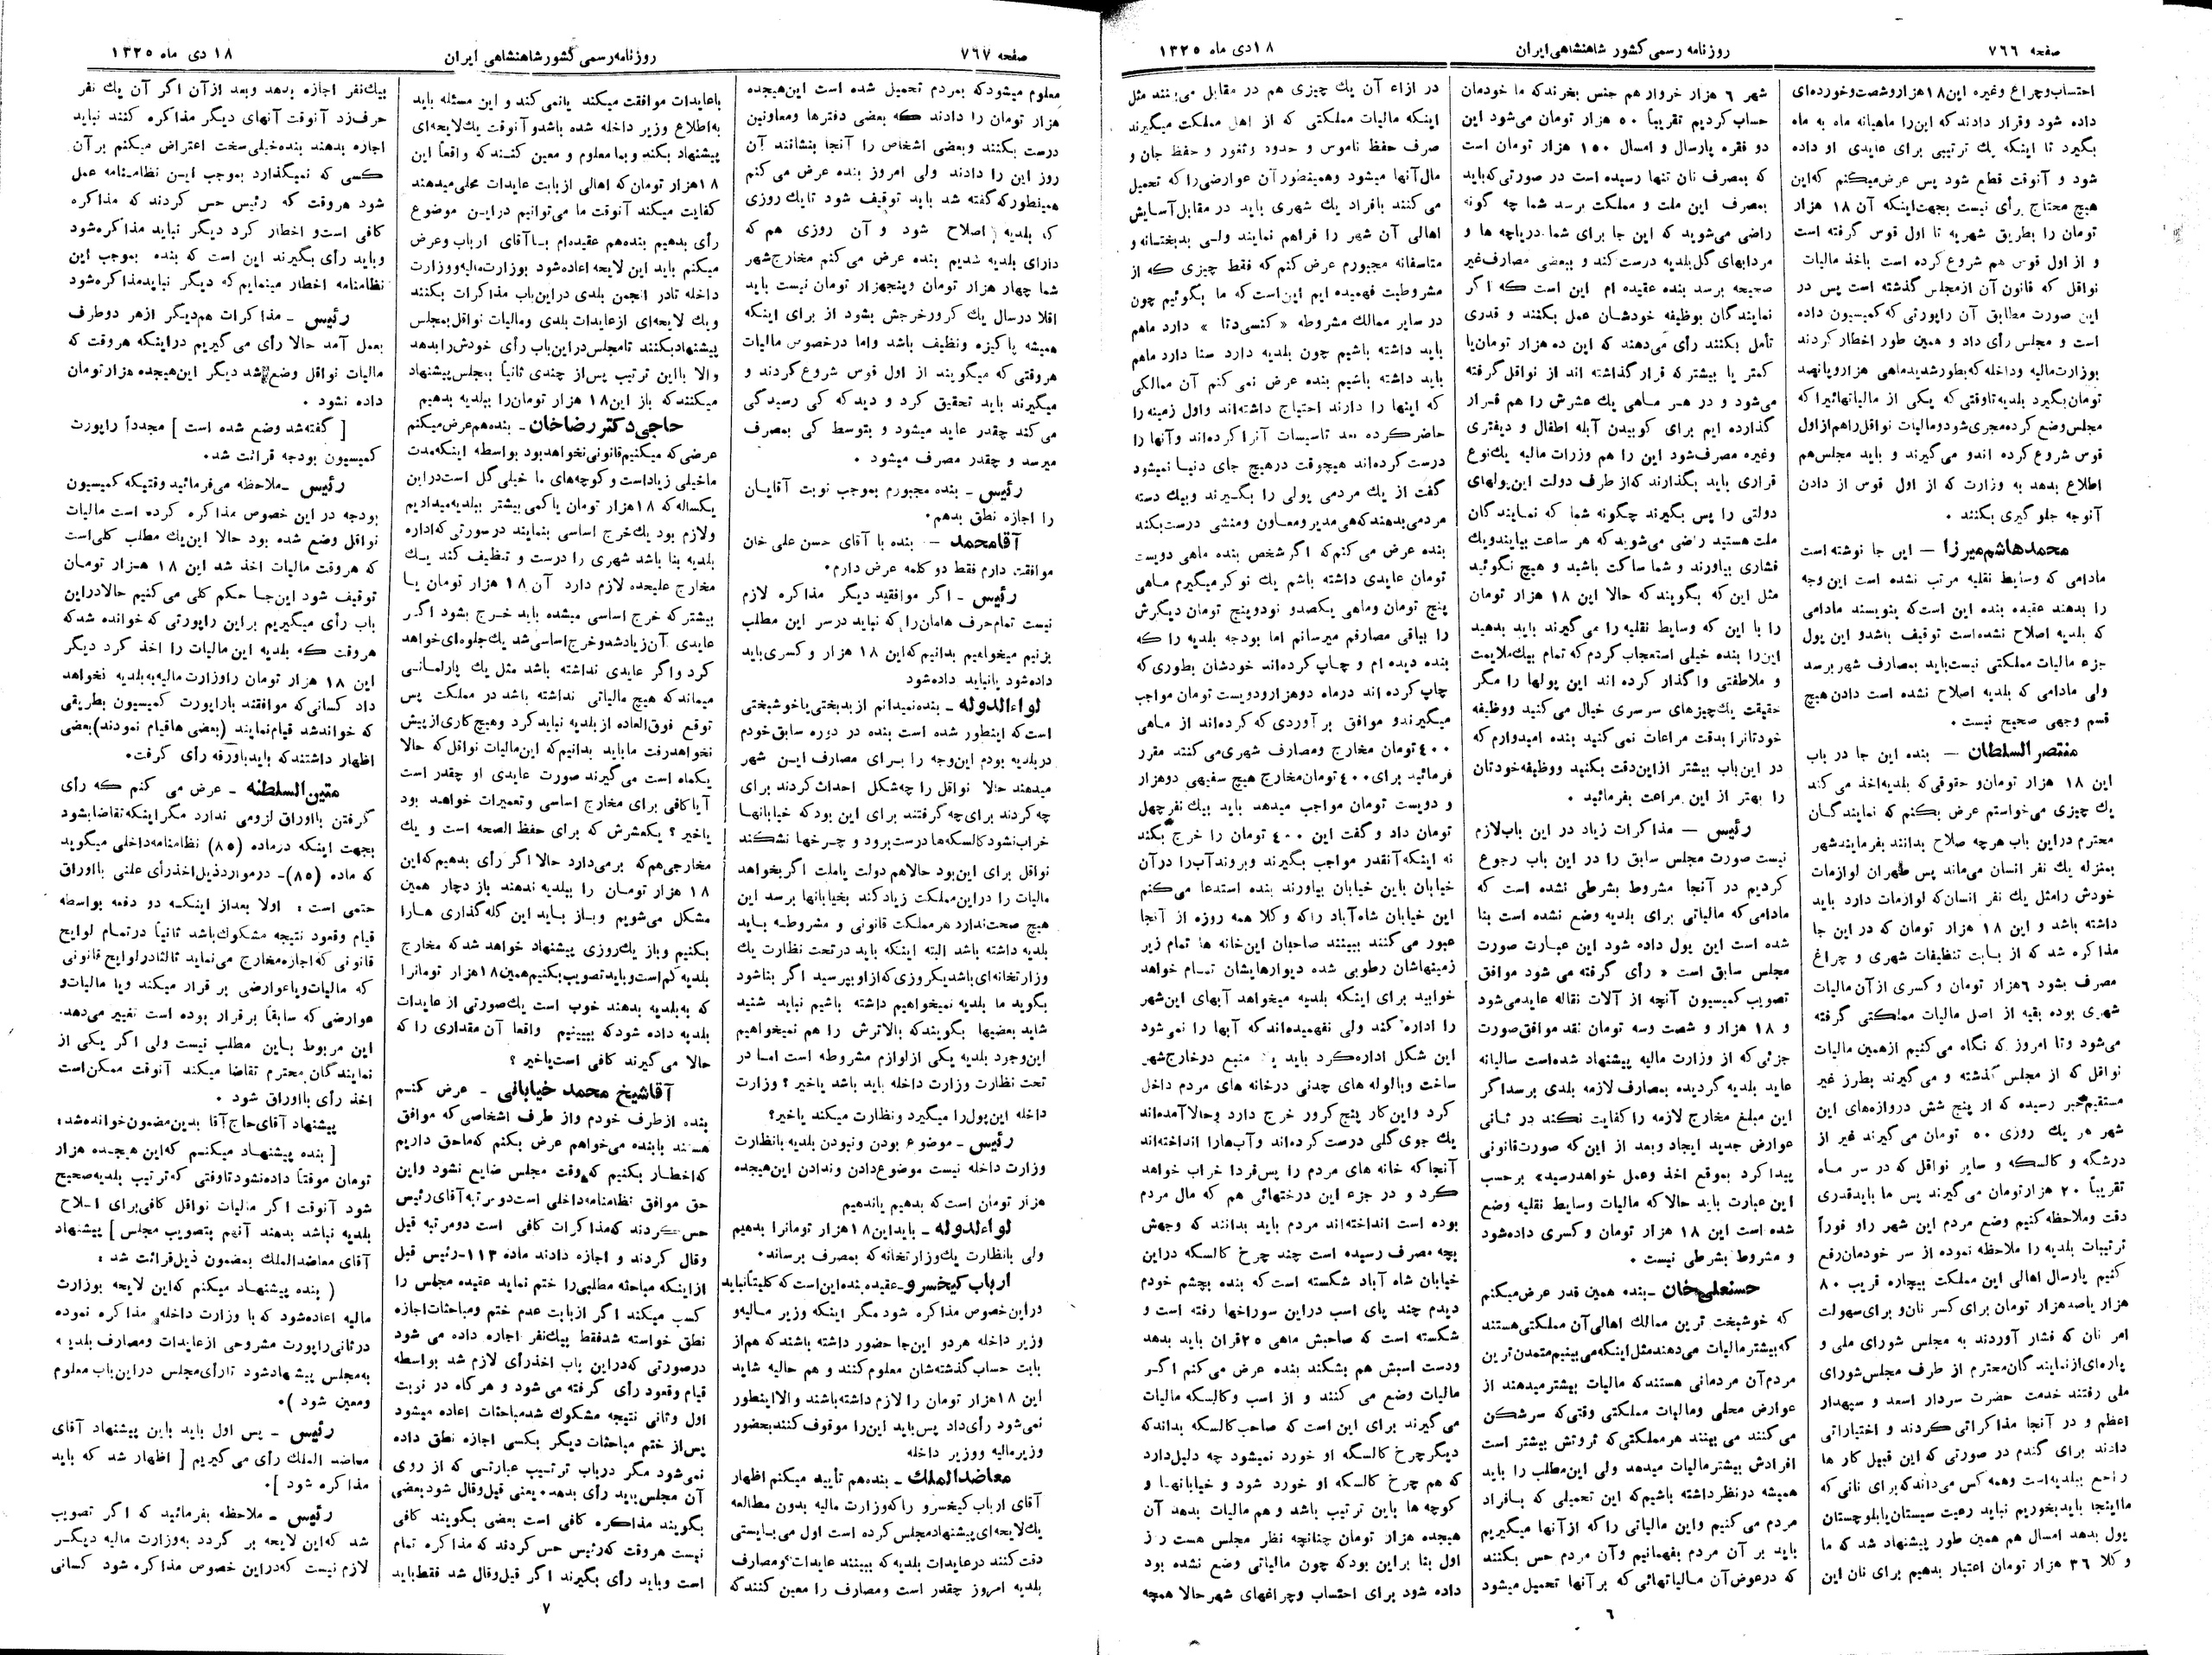 صفحه ۷۶۶
روزنامه رسمی کشور شاهنشاهی ایران
۱۸ دی ماه ۱۳۲۵
احتساب وچراغ وغیره این ۱۸ هزار و شصت و خورده‌ای
داده شود و قرار دادند که این را ماهیانه ماه به ماه
بگیرد تا اینکه یك ترتیبی برای عایدی او داده
شود و آنوقت قطع شود پس عرض میکنم که این
هیچ محتاج رأی نیست بجهت اینکه آن ۱۸ هزار
تومان را بطریق شهریه تا اول قوس گرفته است
و از اول قوس هم شروع کرده است باخذ مالیات
نواقل که قانون آن از مجلس گذشته است پس در
این صورت مطابق آن راپورتی که کمیسیون داده
است و مجلس رأی داد و همین طور اخطار کردند
بوزارت مالیه و داخله که بطور شدید ماهی هزار و پانصد
تومان بگیرد بلدیه تا وقتی که یکی از مالیاتهائیرا که
مجلس وضع کرده مجری شود و مالیات نواقل را هم از اول
قوس شروع کرده اند و می گیرند و باید مجلس هم
اطلاع بدهد به وزارت که از اول قوس از دادن
آنوجه جلو گیری بکنند .
محمد هاشم میرزا — این جا نوشته است
مادامی که وسایط نقلیه مرتب نشده است این وجه
را بدهند عقیده بنده این است که بنویسند مادامی
که بلدیه اصلاح نشده است توقیف باشد و این پول
جزء مالیات مملکتی نیست باید بمصارف شهر برسد
ولی مادامی که بلدیه اصلاح نشده است دادن هیچ
قسم وجهی صحیح نیست .
منتصر السلطان — بنده این جا در باب
این ۱۸ هزار تومان و حقوقی که بلدیه اخذ می کند
یك چیزی می خواستم عرض بکنم که نمایندگان
محترم در این باب هرچه صلاح بدانند بفرمایند شهر
بمنزله یك نفر انسان می‌ماند پس طهران لوازمات
خودش را مثل یك نفر انسان که لوازمات دارد باید
داشته باشد و این ۱۸ هزار تومان که در این جا
مذاکره شد که از بابت تنظیفات شهری و چراغ
مصرف بشود ۶ هزار تومان و کسری از آن مالیات
شهری بوده بقیه از اصل مالیات مملکتی گرفته
می‌شود و تا امروز که نگاه می کنیم از همین مالیات
نواقل که از مجلس گذشته و می گیرند بطرز غیر
مستقیم خبر رسیده که از پنج شش دروازه‌های این
شهر هر یك روزی ۵۰ تومان می گیرند غیر از
درشگه و کالسکه و سایر نواقل که در سر ماه
تقریباً ۲۰ هزار تومان می گیرند پس ما باید قدری
دقت و ملاحظه کنیم وضع مردم این شهر را و فوراً
ترتیبات بلدیه را ملاحظه نموده از سر خودمان رفع
کنیم پارسال اهالی این مملکت بیچاره قریب ۸۰
هزار یا صد هزار تومان برای کسر نان و برای سهولت
امر نان که فشار آوردند به مجلس شورای ملی و
پاره‌ای از نمایندگان محترم از طرف مجلس شورای
ملی رفتند خدمت حضرت سردار اسعد و سپهدار
اعظم و در آنجا مذاکراتی کردند و اختیاراتی
دادند برای گندم در صورتی که این قبیل کار ها
راجع ببلدیه است و همه کس می‌داند که برای نانی که
ما اینجا باید بخوریم نباید رعیت سیستان یا بلوچستان
پول بدهد امسال هم همین طور پیشنهاد شد که ما
وکلا ۳۶ هزار تومان اعتبار بدهیم برای نان این
شهر ۶ هزار خروار هم جنس بخرند که ما خودمان
حساب کردیم تقریباً ۵۰ هزار تومان می‌شود این
دو فقره پارسال و امسال ۱۵۰ هزار تومان است
که بمصرف نان تنها رسیده است در صورتی که باید
بمصرف این ملت و مملکت برسد شما چه گونه
راضی می‌شوید که این جا برای شما دریاچه ها و
مردابهای گل بلدیه درست کند و ببعضی مصارف غیر
صحیحه برسد بنده عقیده ام این است که اگر
نمایندگان بوظیفه خودشان عمل بکنند و قدری
تأمل بکنند رأی می‌دهند که این ده هزار تومان یا
کمتر یا بیشتر که قرار گذاشته اند از نواقل گرفته
می‌شود و در هر ماهی یك عشرش را هم قرار
گذارده ایم برای کوبیدن آبله اطفال و دیفتری
وغیره مصرف شود این را هم وزرات مالیه یك نوع
قراری باید بگذارند که از طرف دولت این پولهای
دولتی را پس بگیرند چگونه شما که نمایندگان
ملت هستید راضی می‌شوید که هر ساعت بیایند و یك
فشاری بیاورند و شما ساکت باشید و هیچ نگوئید
مثل این که بگویند که حالا این ۱۸ هزار تومان
را با این که وسایط نقلیه را می گیرند باید بدهید
این را بنده خیلی استعجاب کردم که تمام بیك ملایمت
و ملاطفتی واگذار کرده اند این پولها را مگر
حقیقت یك چیزهای سرسری خیال می کنید و وظیفه
خودتانرا بدقت مراعات نمی کنید بنده امیدوارم که
در این باب بیشتر از این دقت بکنید و وظیفه خودتان
را بهتر از این مراعت بفرمائید .
رئیس — مذاکرات زیاد در این باب لازم
نیست صورت مجلس سابق را در این باب رجوع
کردیم در آنجا مشروط بشرطی نشده است که
مادامی که مالیاتی برای بلدیه وضع نشده است بنا
شده است این پول داده شود این عبارت صورت
مجلس سابق است « رأی گرفته می شود موافق
تصویب کمیسیون آنچه از آلات نقاله عاید می‌شود
و ۱۸ هزار و شصت وسه تومان نقد موافق صورت
جزئی که از وزارت مالیه پیشنهاد شده است سالیانه
عاید بلدیه گردیده بمصارف لازمه بلدی برسد اگر
این مبلغ مخارج لازمه را کفایت نکند در ثانی
عوارض جدید ایجاد وبعد از این که صورت قانونی
پیدا کرد بموقع اخذ وعمل خواهد رسید» برحسب
این عبارت باید حالا که مالیات وسایط نقلیه وضع
شده است این ۱۸ هزار تومان و کسری داده شود
و مشروط بشرطی نیست .
حسنعلی خان - بنده همین قدر عرض میکنم
که خوشبخت ترین ممالك اهالی آن مملکتی هستند
که بیشتر مالیات می‌دهند مثل اینکه می بینیم متمدن ترین
مردم آن مردمانی هستند که مالیات بیشتر میدهند از
عوارض محلی ومالیات مملکتی وقتی که سر شکن
می کنند می بینند هر مملکتی که ثروتش بیشتر است
افرادش بیشتر مالیات میدهد ولی این مطلب را باید
همیشه در نظر داشته باشیم که این تحمیلی که بافراد
مردم می کنیم واین مالیاتی را که از آنها میگیریم
باید بر آن مردم بفهمانیم و آن مردم حس بکنند
که درعوض آن مالیاتهائی که بر آنها تحمیل میشود
در ازاء آن یك چیزی هم در مقابل می‌بینند مثل
اینکه مالیات مملکتی که از اهل مملکت میگیرند
صرف حفظ ناموس و حدود وثغور و حفظ جان و
مال آنها میشود وهمینطور آن عوارضی را که تحمیل
می کنند بافراد یك شهری باید در مقابل آسایش
اهالی آن شهر را فراهم نمایند ولی بدبختانه و
متاسفانه مجبورم عرض کنم که فقط چیزی که از
مشروطیت فهمیده ایم این است که ما بگوئیم چون
در سایر ممالك مشروطه « کنسی دتا » دارد ماهم
باید داشته باشیم چون بلدیه دارد سنا دارد ماهم
باید داشته باشیم بنده عرض نمی کنم آن ممالکی
که اینها را دارند احتیاج داشته‌اند واول زمینه را
حاضر کرده بعد تاسیسات آنرا کرده‌اند و آنها را
درست کرده‌اند هیچوقت درهیچ جای دنیا نمیشود
گفت از یك مردمی پولی را بگیرند و بیك دسته
مردمی بدهند که هی مدیر ومعاون ومنشی درست بکند
بنده عرض می کنم که اگر شخص بنده ماهی دویست
تومان عایدی داشته باشم یك نوکر میگیرم ماهی
پنج تومان وماهی یکصد و نود و پنج تومان دیگرش
را بباقی مصارفم میرسانم اما بودجه بلدیه را که
بنده دیده ام و چاپ کرده‌اند خودشان بطوری که
چاپ کرده اند درماه دوهزار و دویست تومان مواجب
میگیرند و موافق بر آوردی که کرده‌اند از ماهی
۴۰۰ تومان مخارج ومصارف شهری می کنند مقرر
فرمائید برای ۴۰۰ تومان مخارج هیچ سفیهی دوهزار
و دویست تومان مواجب میدهد باید بیك نفر چهل
تومان داد و گفت این ۴۰۰ تومان را خرج بکند
نه اینکه آنقدر مواجب بگیرند و بروند آب را در آن
خیابان باین خیابان بیاورند بنده استدعا می کنم
این خیابان شاه آباد را که وکلا همه روزه از آنجا
عبور می کنند ببینند صاحبان این خانه ها تمام زیر
زمینهاشان رطوبی شده دیوارهایشان تمام خواهد
خوابید برای اینکه بلدیه میخواهد آبهای این شهر
را اداره کند ولی نفهمیده‌اند که آبها را نمی شود
این شکل اداره کرد باید یك منبع در خارج شهر
ساخت وبالوله های چدنی درخانه های مردم داخل
کرد واین کار پنج کرور خرج دارد وحالا آمده‌اند
یك جوی گلی درست کرده‌اند و آب‌هارا انداخته‌اند
آنجا که خانه های مردم را پس فردا خراب خواهد
کرد و در جزء این درختهائی هم که مال مردم
بوده است انداخته‌اند مردم باید بدانند که وجهش
بچه مصرف رسیده است چند چرخ کالسکه دراین
خیابان شاه آباد شکسته است که بنده بچشم خودم
دیدم چند پای اسب دراین سوراخها رفته است و
شکسته است که صاحبش ماهی ۲۵ قران باید بدهد
ودست اسبش هم بشکند بنده عرض می کنم اگر
مالیات وضع می کنند و از اسب وکالسکه مالیات
می گیرند برای این است که صاحب کالسکه بداند که
دیگر چرخ کالسگه او خورد نمیشود چه دلیل دارد
که هم چرخ کالسکه او خورد شود و خیابانها و
کوچه ها باین ترتیب باشد و هم مالیات بدهد آن
هیجده هزار تومان چنانچه نظر مجلس هست روز
اول بنا براین بود که چون مالیاتی وضع نشده بود
داده شود برای احتساب وچراغهای شهر حالا همچه
۶
صفحه ۷۶۷
روزنامه رسمی کشور شاهنشاهی ایران
۱۸ دی ماه ۱۳۲۵
معلوم میشود که بمردم تحمیل شده است این هیجده
هزار تومان را دادند که بعضی دفترها ومعاونین
درست بکنند وبعضی اشخاص را آنجا بنشانند آن
روز این را دادند ولی امروز بنده عرض می کنم
همینطور که گفته شد باید توقیف شود تا یك روزی
که بلدیه اصلاح شود و آن روزی هم که
دارای بلدیه شدیم بنده عرض می کنم مخارج شهر
شما چهار هزار تومان وپنجهزار تومان نیست باید
اقلا در سال یك کرور خرجش بشود از برای اینکه
همیشه پاکیزه ونظیف باشد واما درخصوص مالیات
هروقتی که میگویند از اول قوس شروع کردند و
میگیرند باید تحقیق کرد و دید که کی رسیدگی
می کند چقدر عاید میشود و بتوسط کی بمصرف
میرسد و چقدر مصرف میشود .
رئیس - بنده مجبورم بموجب نوبت آقایان
را اجازه نطق بدهم .
آقا محمد — بنده با آقای حسن علی خان
موافقت دارم فقط دو کلمه عرض دارم .
رئیس - اگر موافقید دیگر مذاکره لازم
نیست تمام حرف هامان را که نباید درسر این مطلب
بزنیم میخواهیم بدانیم که این ۱۸ هزار و کسری باید
داده شود یا نباید داده شود
لواء الدوله - بنده نمیدانم از بدبختی یا خوشبختی
است که اینطور شده است بنده در دوره سابق خودم
در بلدیه بودم این وجه را برای مصارف این شهر
میدهند حالا نواقل را چه شکل احداث کردند برای
چه کردند برای چه گرفتند برای این بود که خیابانها
خراب نشود کالسکه ها درست برود و چرخها نشکند
نواقل برای این بود حالا هم دولت یا ملت اگر بخواهد
مالیات را در این مملکت زیاد کند بخیابانها برسد این
هیچ صحت ندارد هر مملکت قانونی و مشروطه باید
بلدیه داشته باشد البته اینکه باید در تحت نظارت یك
وزارتخانه‌ای باشد یکروزی که از او بپرسید اگر بنا شود
بگوید ما بلدیه نمیخواهیم داشته باشیم نباید شنید
شاید بعضیها بگویند که بالاترش را هم نمیخواهیم
این وجود بلدیه یکی از لوازم مشروطه است اما در
تحت نظارت وزارت داخله باید باشد یا خیر ؟ وزارت
داخله این پول را میگیرد ونظارت میکند یا خیر؟
رئیس - موضوع بودن ونبودن بلدیه بانظارت
وزارت داخله نیست موضوع دادن وندادن این هیجده
هزار تومان است که بدهیم یا ندهیم
لواءالدوله - باید این ۱۸ هزار تومانرا بدهیم
ولی بانظارت یك وزارتخانه که بمصرف برساند .
ارباب کیخسرو - عقیده بنده این است که کلیتاً نباید
دراین خصوص مذاکره شود مگر اینکه وزیر مالیه و
وزیر داخله هردو این جا حضور داشته باشند که هم از
بابت حساب گذشته‌شان معلوم کنند و هم حالیه شاید
این ۱۸ هزار تومان را لازم داشته باشند والا اینطور
نمی‌شود رأی داد پس باید این را موقوف کنند بحضور
وزیر مالیه ووزیر داخله
معاضد الملك - بنده هم تأیید میکنم اظهار
آقای ارباب کیخسرو را که وزارت مالیه بدون مطالعه
یك لایحه‌ای پیشنهاد مجلس کرده است اول می بایستی
دقت کنند درعایدات بلدیه که ببینند عایدات ومصارف
بلدیه امروز چقدر است ومصارف را معین کنند که
باعایدات موافقت میکند یا نمی کند و این مسئله باید
به اطلاع وزیر داخله شده باشد و آنوقت یك لایحه‌ای
پیشنهاد بکند وبما معلوم و معین کنند که واقعاً این
۱۸ هزار تومان که اهالی از بابت عایدات محلی میدهند
کفایت میکند آنوقت ما می‌توانیم دراین موضوع
رأی بدهیم بنده هم عقیده‌ام با آقای ارباب وعرض
میکنم باید این لایحه اعاده شود بوزارت مالیه ووزارت
داخله تا در انجمن بلدی در این باب مذاکرات بکنند
ویك لایحه‌ای از عایدات بلدی ومالیات نواقل بمجلس
پیشنهاد بکنند تا مجلس در این باب رأی خودش را بدهد
والا با این ترتیب پس از چندی ثانیاً بمجلس پیشنهاد
میکنند که باز این ۱۸ هزار تومان را ببلدیه بدهیم
حاجی دکتر رضا خان - بنده هم عرض میکنم
عرضی که میکنیم قانونی نخواهد بود بواسطه اینکه مدت
ما خیلی زیاد است و کوچه‌های ما خیلی گل است در این
یکساله که ۱۸ هزار تومان یا کمی بیشتر ببلدیه میدادیم
ولازم بود یك خرج اساسی بنمایند درصورتی که اداره
بلدیه بنا باشد شهری را درست و تنظیف کند یك
مخارج علیحده لازم دارد آن ۱۸ هزار تومان یا
بیشتر که خرج اساسی میشده باید خرج بشود اگر
عایدی آن زیاد شد وخرج اساسی شد یك جلوه‌ای خواهد
کرد واگر عایدی نداشته باشد مثل یك پارلمانی
میماند که هیچ مالیاتی نداشته باشد در مملکت پس
توقع فوق العاده از بلدیه نباید کرد وهیچ کاری از پیش
نخواهد رفت ما باید بدانیم که این مالیات نواقل که حالا
یکماه است می گیرند صورت عایدی او چقدر است
آیا کافی برای مخارج اساسی وتعمیرات خواهد بود
یا خیر ؟ یکعشرش که برای حفظ الصحه است و یك
مخارجی هم که برمی‌دارد حالا اگر رأی بدهیم که این
۱۸ هزار تومان را ببلدیه ندهند باز دچار همین
مشکل می‌شویم وباز باید این گله گذاری هارا
بکنیم وباز یك روزی پیشنهاد خواهد شد که مخارج
بلدیه کم است وباید تصویب بکنیم همین ۱۸ هزار تومانرا
که به بلدیه بدهند خوب است یك صورتی از عایدات
بلدیه داده شود که ببینیم واقعاً آن مقداری را که
حالا می گیرند کافی است یا خیر ؟
آقا شیخ محمد خیابانی - عرض کنم
بنده از طرف خودم واز طرف اشخاصی که موافق
هستند بابنده می‌خواهم عرض بکنم که ما حق داریم
که اخطار بکنیم که وقت مجلس ضایع نشود واین
حق موافق نظامنامه داخلی است دو مرتبه آقای رئیس
حس کردند که مذاکرات کافی است دو مرتبه قیل
وقال کردند و اجازه دادند ماده ۱۱۳ - رئیس قبل
از اینکه مباحثه مطلبی را ختم نماید عقیده مجلس را
کسب میکند اگر ازبابت عدم ختم ومباحثات اجازه
نطق خواسته شد فقط بیك نفر اجازه داده می شود
در صورتی که در این باب اخذ رأی لازم شد بواسطه
قیام وقعود رأی گرفته می شود و هرگاه در نوبت
اول وثانی نتیجه مشکوك شد مباحثات اعاده میشود
پس از ختم مباحثات دیگر بکسی اجازه نطق داده
نمی‌شود مگر درباب ترتیب عبارتی که از روی
آن مجلس باید رأی بدهد . یعنی قیل وقال شود بعضی
بگویند مذاکره کافی است بعضی بگویند کافی
نیست هروقت که رئیس حس کردند که مذاکره تمام
است وباید رأی بگیرند اگر قیل وقال شد فقط باید
بیك نفر اجازه بدهد وبعد از آن اگر آن یك نفر
حرف زد آنوقت آنهای دیگر مذاکره کنند نباید
اجازه بدهند بنده خیلی سخت اعتراض میکنم بر آن
کسی که نمیگذارد بموجب این نظامنامه عمل
شود هروقت که رئیس حس کردند که مذاکره
کافی است و اخطار کرد دیگر نباید مذاکره شود
وباید رأی بگیرند این است که بنده بموجب این
نظامنامه اخطار مینمایم که دیگر نباید مذاکره شود
رئیس - مذاکرات هم دیگر از هر دو طرف
بعمل آمد حالا رأی می گیریم در اینکه هر وقت که
مالیات نواقل وضع شد دیگر این هیجده هزار تومان
داده نشود .
[ گفته شد وضع شده است ] مجدداً راپورت
کمیسیون بودجه قرائت شد .
رئیس - ملاحظه می‌فرمائید وقتیکه کمیسیون
بودجه در این خصوص مذاکره کرده است مالیات
نواقل وضع شده بود حالا این یك مطلب کلی است
که هروقت مالیات اخذ شد این ۱۸ هزار تومان
توقیف شود این جا حکم کلی می کنیم حالا در این
باب رأی میگیریم براین راپورتی که خوانده شد که
هروقت که بلدیه این مالیات را اخذ کرد دیگر
این ۱۸ هزار تومان را وزارت مالیه به بلدیه نخواهد
داد کسانی که موافقند باراپورت کمیسیون بطریقی
که خوانده شد قیام نمایند (بعضی ها قیام نمودند) بعضی
اظهار داشتند که باید باورقه رأی گرفت .
متین السلطنه - عرض می کنم که رأی
گرفتن بااوراق لزومی ندارد مگر اینکه تقاضا بشود
بجهت اینکه درماده (۸۵) نظامنامه داخلی میگوید
که ماده (۸۵) - درموارد ذیل اخذ رأی علنی بااوراق
حتمی است : اولا بعد از اینکه دو دفعه بواسطه
قیام وقعود نتیجه مشکوك باشد ثانیاً درتمام لوایح
قانونی که اجازه مخارج می‌نماید ثالثاً در لوایح قانونی
که مالیات ویا عوارضی بر قرار میکند ویا مالیات و
عوارضی که سابقاً برقرار بوده است تغییر می‌دهد .
این مربوط باین مطلب نیست ولی اگر یکی از
نمایندگان محترم تقاضا میکند آنوقت ممکن است
اخذ رأی بااوراق شود .
پیشنهاد آقای حاج آقا بدین مضمون خوانده شد :
[ بنده پیشنهاد میکنم که این هیجده هزار
تومان موقتاً داده نشود تا وقتی که ترتیب بلدیه صحیح
شود آنوقت اگر مالیات نواقل کافی برای اصلاح
بلدیه نباشد بدهند آنهم بتصویب مجلس ] پیشنهاد
آقای معاضد الملك بمضمون ذیل قرائت شد :
( بنده پیشنهاد میکنم که این لایحه بوزارت
مالیه اعاده شود که با وزارت داخله مذاکره نموده
در ثانی راپورت مشروحی از عایدات ومصارف بلدیه
به مجلس پیشنهاد شود تا رأی مجلس در این باب معلوم
ومعین شود ) .
رئیس - پس اول باید باین پیشنهاد آقای
معاضد الملك رأی می گیریم [ اظهار شد که باید
مذاکره شود ] .
رئیس - ملاحظه بفرمائید که اگر تصویب
شد که این لایحه بر گردد به وزارت مالیه دیگر
لازم نیست که در این خصوص مذاکره شود کسانی
۷